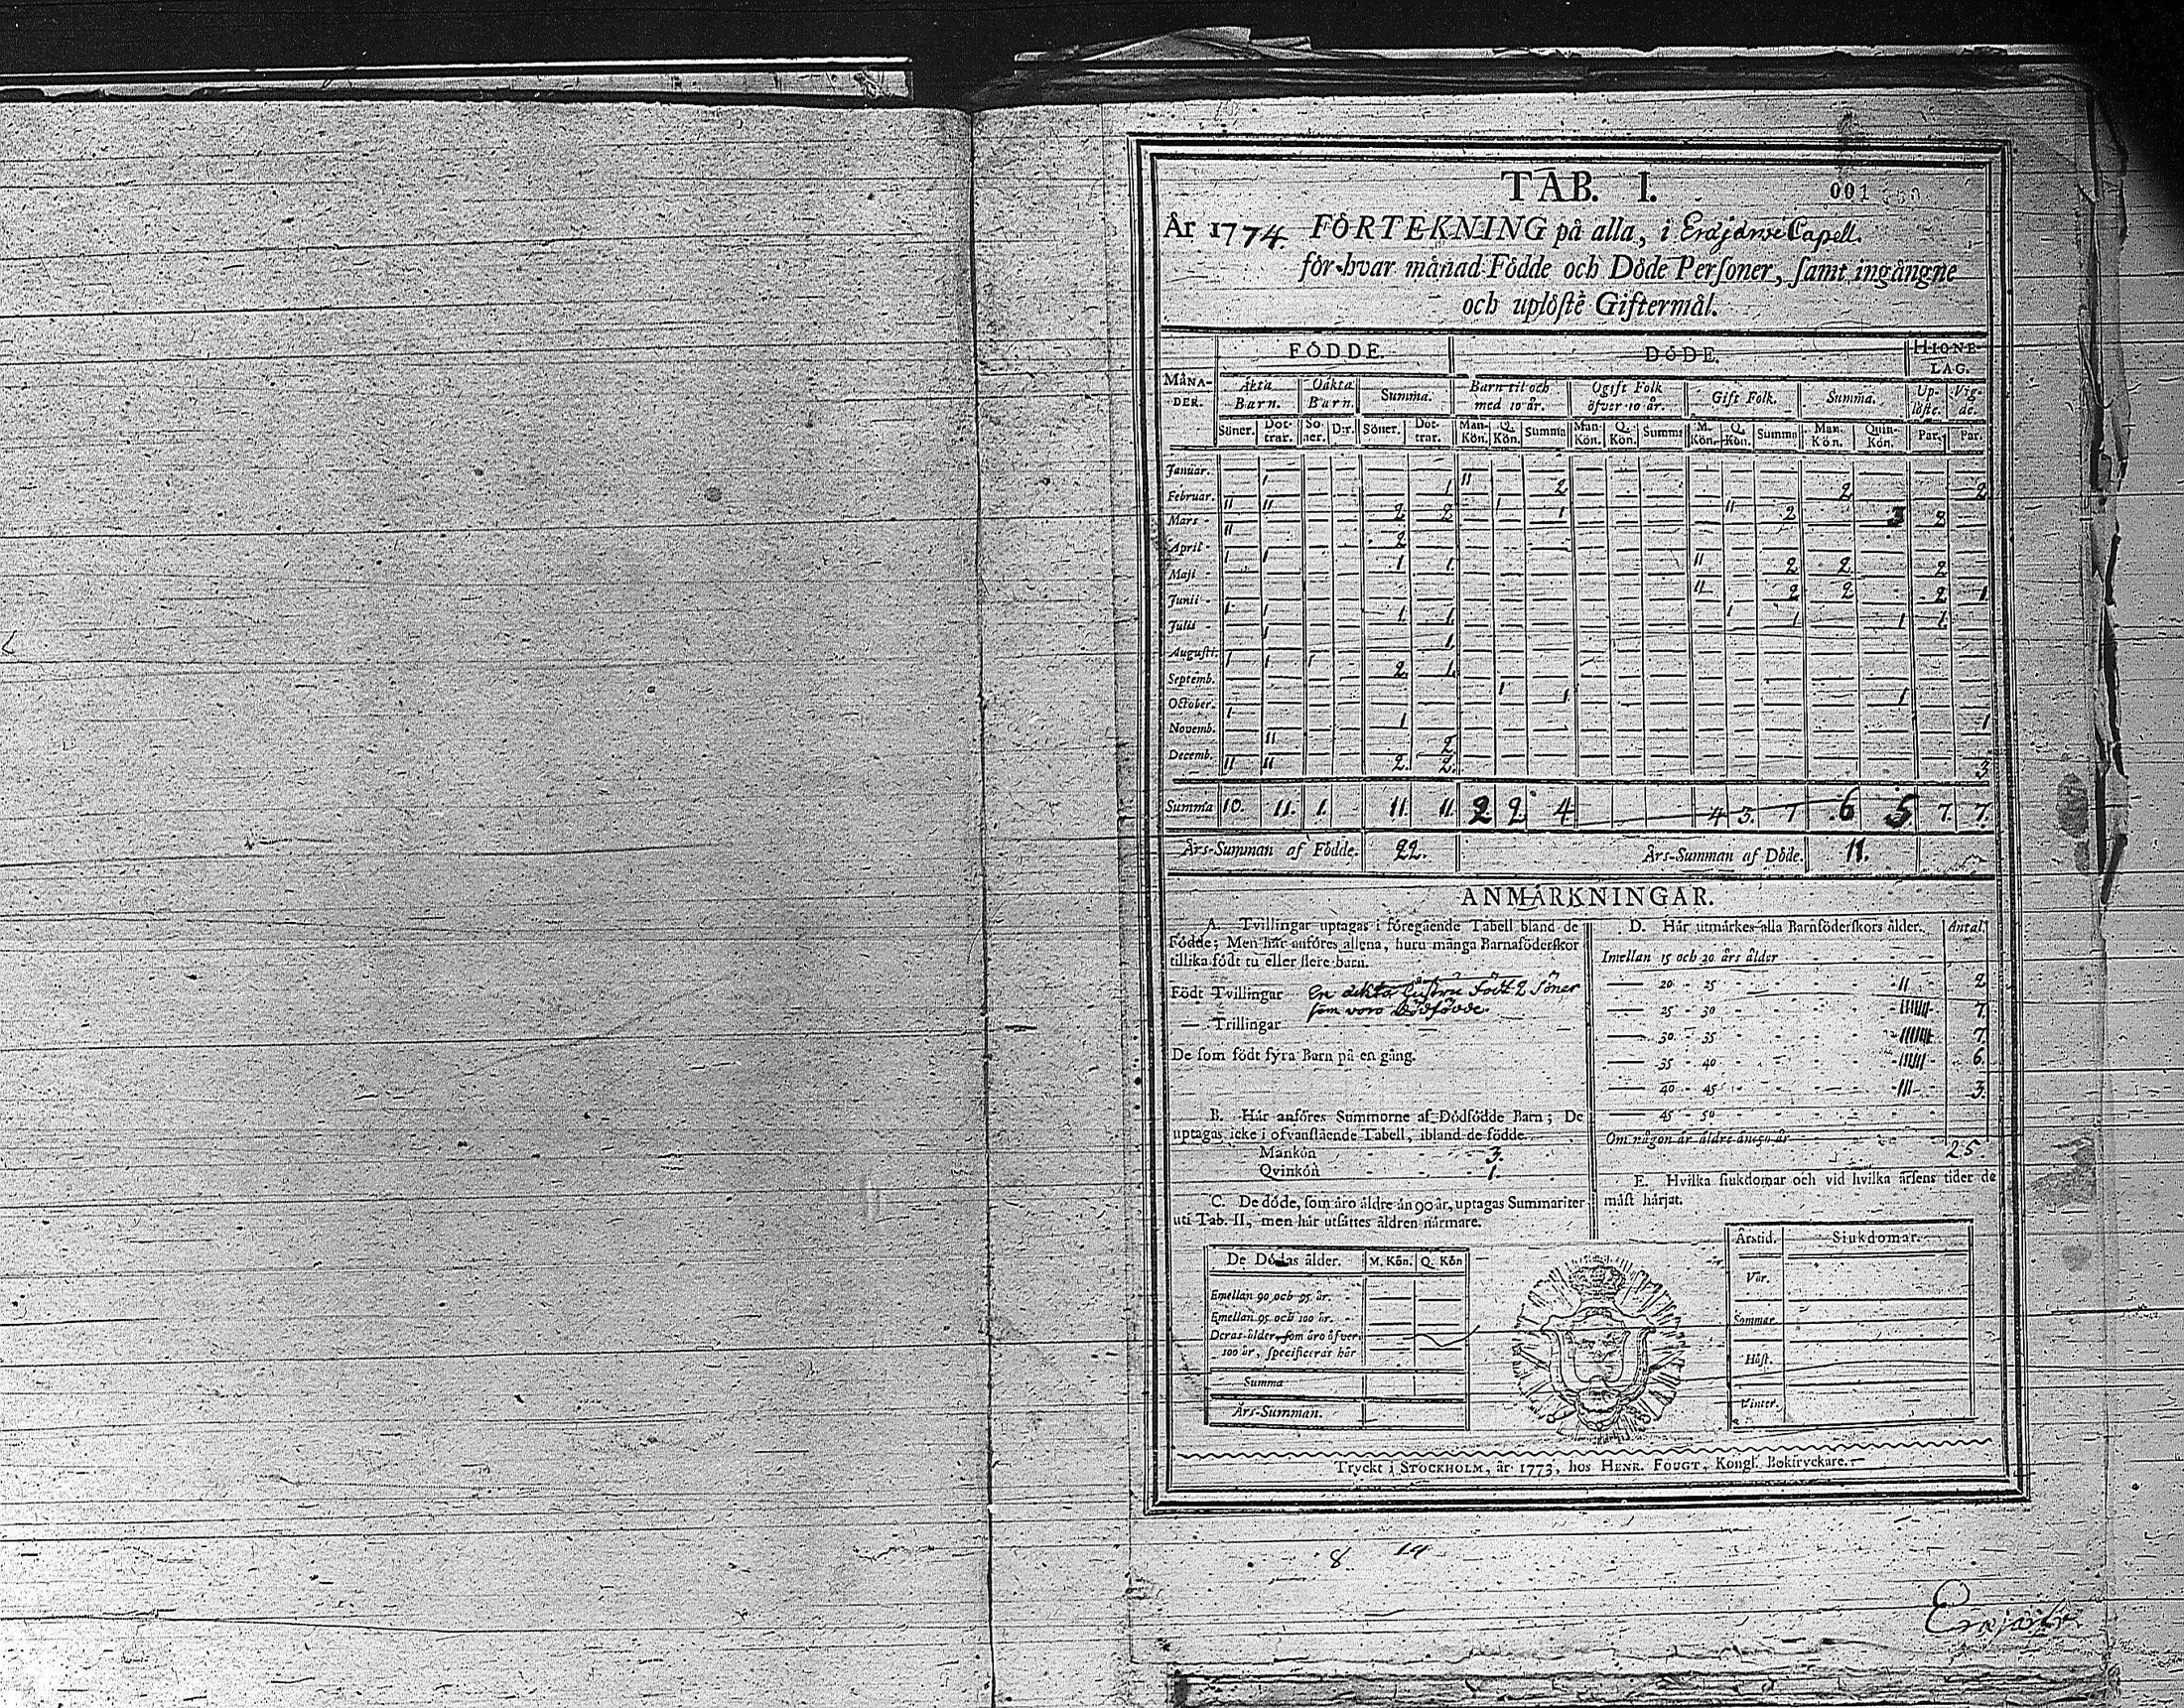 TAB. I.
001
År 1774 FÖRTEKNING på alla, i Eräjärwi Capell.
för hvar månad Födde och Döde Perſoner, ſamt ingångne
och uplöſte Giftermål.
MÅNA-DER. FÖDDE. DÖDE. HIONE-LAG.
Äkta Barn. Oäkta Barn. Summa. Barn til och med 10 år. Ogift Folk öfver 10 år. Gift Folk. Summa. Up-löſte. Vig-de.
Söner. Döt-trar. Sö-ner. D:r. Söner. Döt-trar. Man-Kön. Q. Kön. Summa Man-Kön. Q. Kön. Summa M. Kön. Q. Kön. Summa Man-Kön. Quin-Kön. Par. Par.
Januar. 1 1 11 2 2 2
Februar. 11 11 2 2 1 1 11 2 3 2
Mars - 11 2
April - 1 1 1 1 11 2 2 2
Maji - 11 2 2 2 1
Junii - 1 1 1 1 1 1 1 1
Julii - 1 1
Auguſti. 1 1 1 2 1
Septemb. 1 1 1
October. 1 1 1
Novemb. 11 2
Decemb. 11 11 2 2 3
Summa 10. 11. 1. 11. 11. 2 2 4 4 3. 7 6 5 7. 7.
Års-Summan af Födde. 22. Års-Summan af Döde. 11.
ANMÄRKNINGAR.
A. Tvillingar uptagas i föregående Tabell bland de
Födde; Men här anföres allena, huru många Barnaföderſkor
tillika födt tu eller flere barn.
Födt Tvillingar En äkta huſtru Födt 2 Söner
ſom voro Dödfödde.
— Trillingar
De ſom födt fyra Barn på en gång.
B. Här anföres Summorne af Dödfödde Barn; De
uptagas icke i ofvanſtående Tabell, ibland de födde.
Mankön - - - 3.
Qvinkön - - - 1.
C. De döde, ſom äro äldre än 90 år, uptagas Summariter
uti Tab. II, men här utſättes åldren närmare.
De Dödas ålder. M. Kön. Q. Kön
Emellan 90 och 95 år. -
Emellan 95 och 100 år. -
Deras ålder, ſom äro öfver
100 år, ſpecificeras här
Summa
Års-Summan.
D. Här utmärkes alla Barnföderſkors ålder. Antal.
Imellan 15 och 20 års ålder
— 20 - 25 - 11 - 2
— 25 - 30 - 1111111 - 7.
— 30 - 35 - 1111111 - 7.
— 35 - 40 - 111111 - 6.
— 40 - 45 - 111 - 3.
— 45 - 50
Om någon är äldre än 50 år
25.
E. Hvilka ſiukdomar och vid hvilka årſens tider de
mäſt härjat.
Årstid. Siukdomar.
Vår.
Sommar.
Höſt.
Vinter.
Tryckt i STOCKHOLM, år 1773, hos HENR. FOUGT, Kongl. Boktryckare.
8 14
Eräjärvi